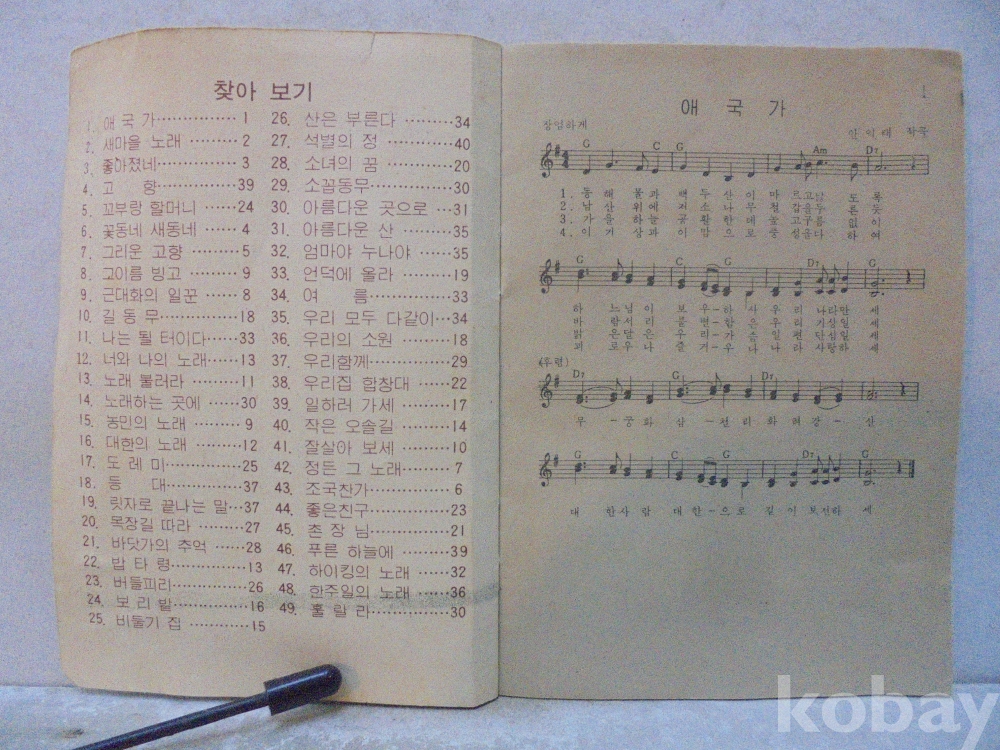 찾아 보기
1. 애 국 가 ············ 1
2. 새마을 노래 ········ 2
3. 좋아졌네 ············ 3
4. 고 향 ··············· 39
5. 꼬부랑 할머니 ······ 24
6. 꽃동네 새동네 ······ 4
7. 그리운 고향 ········ 5
8. 고이름 빙고 ········ 9
9. 근대화의 일꾼 ······ 8
10. 길 동 무 ··········· 18
11. 나는 될 터이다 ··· 33
12. 너와 나의 노래 ··· 13
13. 노래 불러라 ······· 11
14. 노래하는 곳에 ····· 30
15. 농민의 노래 ······· 9
16. 대한의 노래 ······· 12
17. 도 레 미 ··········· 25
18. 등 대 ·············· 37
19. 릿자로 끝나는 말 ··· 37
20. 목장길 따라 ······· 27
21. 바닷가의 추억 ······ 28
22. 밥 타 령 ··········· 13
23. 버들피리 ··········· 26
24. 보 리 밭 ··········· 16
25. 비둘기 집 ·········· 15
26. 산은 부른다 ········ 34
27. 석별의 정 ·········· 40
28. 소녀의 꿈 ·········· 20
29. 소꼽동무 ··········· 30
30. 아름다운 곳으로 ··· 31
31. 아름다운 산 ········ 35
32. 엄마야 누나야 ······ 35
33. 언덕에 올라 ········ 19
34. 여 름 ·············· 33
35. 우리 모두 다같이 ··· 34
36. 우리의 소원 ········ 18
37. 우리함께 ··········· 29
38. 우리집 합창대 ······ 22
39. 일하러 가세 ········ 17
40. 작은 오솔길 ········ 14
41. 잘살아 보세 ········ 10
42. 정든 그 노래 ······· 7
43. 조국찬가 ··········· 6
44. 좋은친구 ··········· 23
45. 촌 장 님 ··········· 21
46. 푸른 하늘에 ········ 39
47. 하이킹의 노래 ······ 32
48. 한주일의 노래 ······ 36
49. 홀 릴 리 ··········· 30
1
애 국 가
장엄하게
안익태 작곡
G C G Am D7
1. 동 해 물 과 백 두 산 이 마 르고닳 도 록
2. 남 산 위 에 저 소 나 무 철 갑을두 른 듯
3. 가 을 하 늘 공 활 한 데 높 고구름 없 이
4. 이 기 상 과 이 맘 으 로 충 성을다 하 여
G C G D7 G
하 느 님 이 보 우-하 사 우 리 나라만 세
바 람 서 리 불 변-함 은 우 리 기상일 세
밝 은 달 은 우 리-가 슴 일 편 단심일 세
괴 로 우 나 즐 거-우 나 나 라 사랑하 세
(후렴)
D7 G D7 G
무 -궁 화 삼 -천 리 화 려강- 산
G C G D7 G
대 한사 람 대한-으로 길 이 보전하 세
kobay